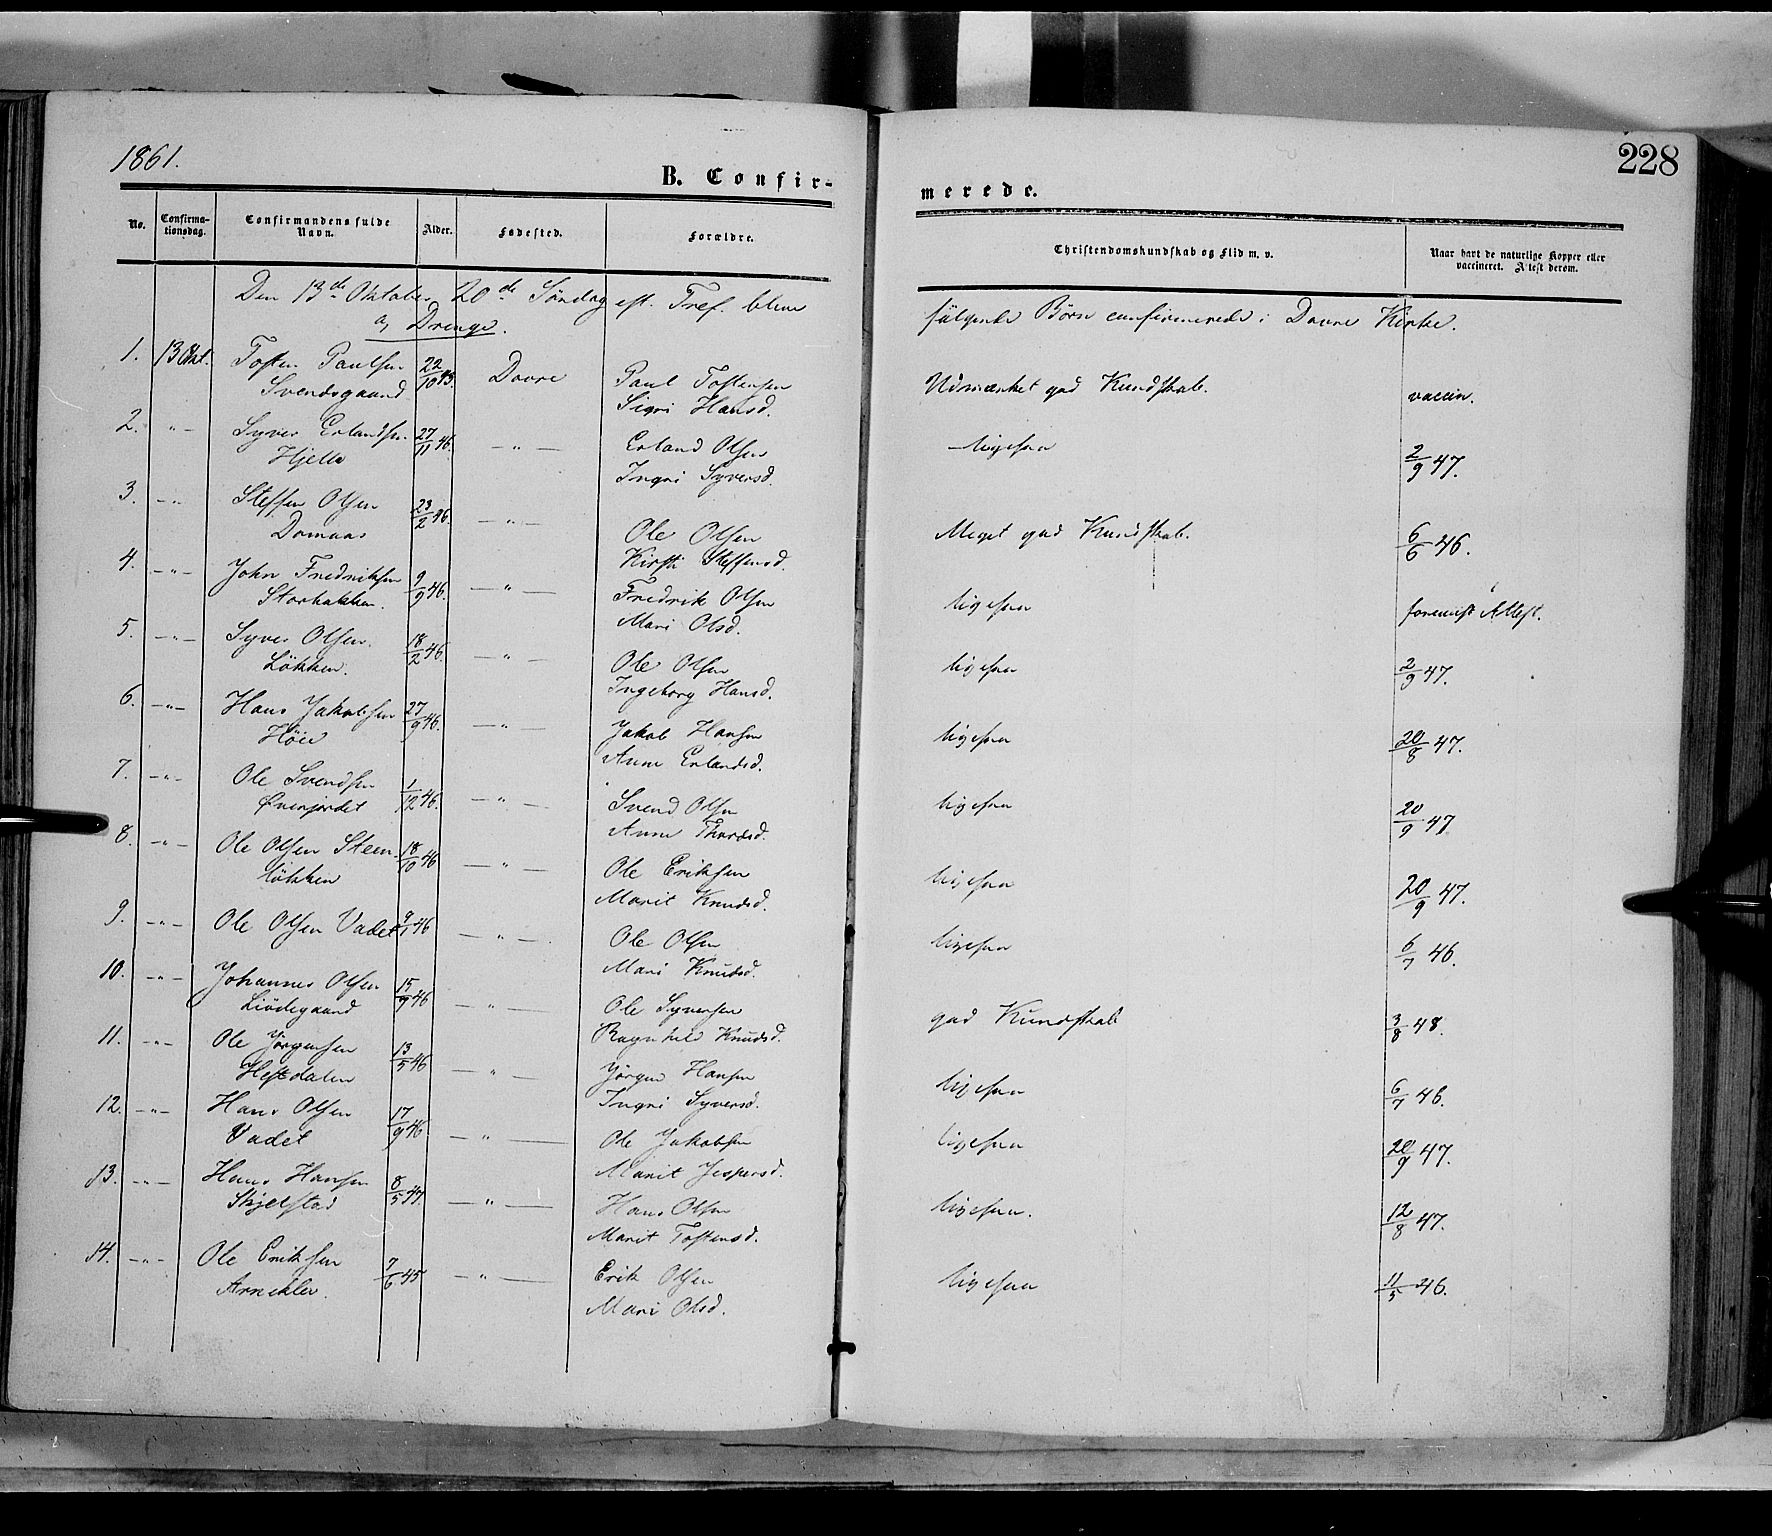 1861.
228
B. Confir-
merede.
No.
Confirma-
tionsdag.
Confirmandens fulde
Navn.
Alder.
Fødested.
Forældre.
Christendomskundskab og Flid m. v.
Naar havt de naturlige Kopper eller
vaccineret. Attest derom.
Den 13de Oktober 20de Søndag eft. Tref. bleve
følgende Børn confirmerede i Dovre Kirke.
a, Drenge.
1. 13 Okt. Tosten Paulsen 22/10 45. Dovre Paul Tostensen Udmærket god Kundskab. vaccin.
Svendsgaard Sigri Hansd.
2. -"- Syver Erlandsen 27/11 46. -"- Erland Olsen ligesaa 2/9 47.
Hjelle Ingri Syversd.
3. -"- Steffen Olsen 23/2 46. -"- Ole Olsen Meget god Kundskab. 6/6 46.
Domaas Kirsti Steffensd.
4. -"- John Fredriksen 9/9 46. -"- Fredrik Olsen ligesaa forevist Attest.
Storbakken. Mari Olsd.
5. -"- Syver Olsen. 18/2 46. -"- Ole Olsen ligesaa 2/9 47.
Løkken. Ingeborg Hansd.
6. -"- Hans Jakobsen 27/9 46. -"- Jakob Hansen ligesaa 20/8 47.
Høie Anne Erlandsd.
7. -"- Ole Svendsen 1/12 46. -"- Svend Olsen ligesaa 20/9 47
Øverjordet Anne Thordsd.
8. -"- Ole Olsen Steen- 18/10 46 -"- Ole Eriksen ligesaa 20/9 47.
løkken Marit Knudsd.
9. -"- Ole Olsen Vadet 9/1 46 -"- Ole Olsen ligesaa 6/7 46.
Mari Knudsd.
10. -"- Johannes Olsen 15/9 46 -"- Ole Syversen god Kundskab 3/8 48.
Liødegaard Ragnhild Knudsd.
11. -"- Ole Jørgensen 13/5 46 -"- Jørgen Hansen ligesaa 6/7 46.
Hestdalen Ingri Syversd.
12. -"- Hans Olsen 17/9 46. -"- Ole Jakobsen ligesaa 20/9 47.
Vadet Marit Jespersd.
13. -"- Hans Hansen 8/5 47. -"- Hans Olsen ligesaa. 12/8 47.
Skjelstad Marit Tostensd.
14. -"- Ole Eriksen 7/6 45 -"- Erik Olsen ligesaa 11/5 46.
Arneklev. Mari Olsd.